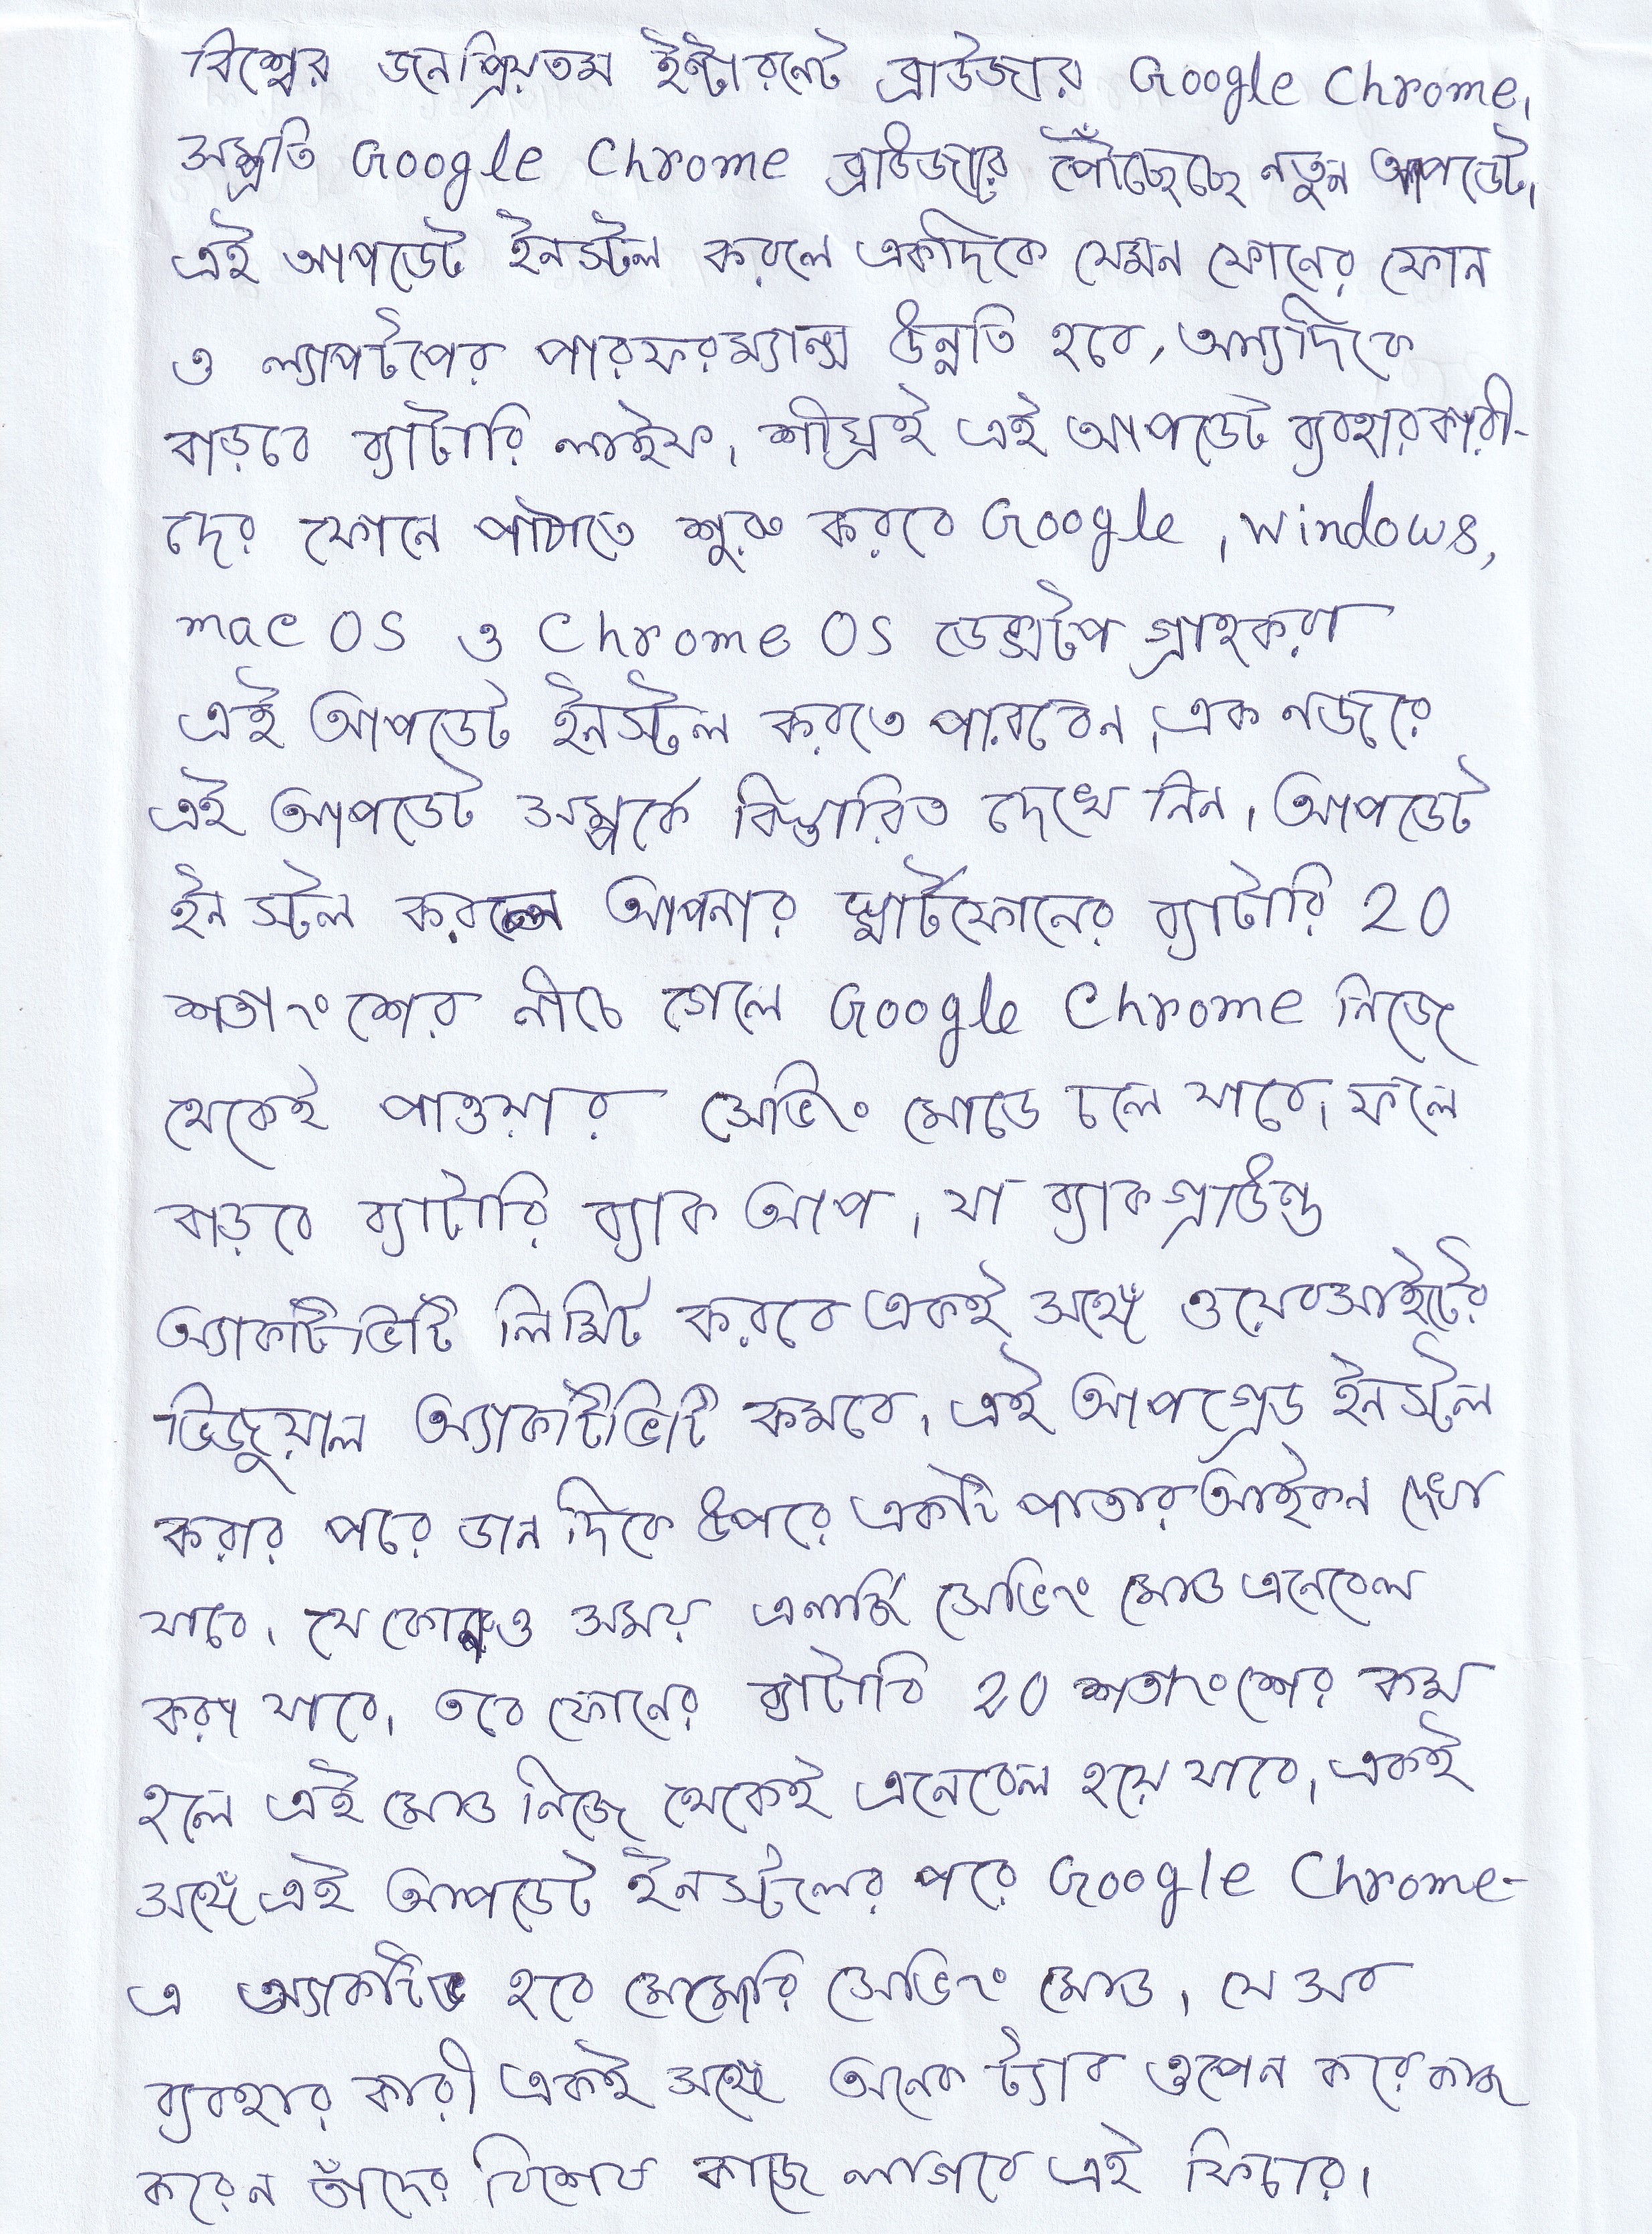 বিশ্বের জনপ্রিয়তম ইন্টারনেট ব্রাউজার Google Chrome।
সম্প্রতি Google Chrome ব্রাউজারে পৌঁছেছে নতুন আপডেট।
এই আপডেট ইনস্টল করলে একদিকে যেমন ফোনের ফোন
ও ল্যাপটপের পারফরম্যান্স উন্নতি হবে, অন্যদিকে
বাড়বে ব্যাটারি লাইফ। শীঘ্রই এই আপডেট ব্যবহারকারী-
দের ফোনে পাঠাতে শুরু করবে Google । Windows,
mac OS ও Chrome OS ডেক্সটপ গ্রাহকরা
এই আপডেট ইনস্টল করতে পারবেন। এক নজরে
এই আপডেট সম্পর্কে বিস্তারিত দেখে নিন। আপডেট
ইনস্টল করলে আপনার স্মার্টফোনের ব্যাটারি 20
শতাংশের নীচে গেলে Google Chrome নিজে
থেকেই পাওয়ার সেভিং মোডে চলে যাবে। ফলে
বাড়বে ব্যাটারি ব্যাক আপ। যা ব্যাকগ্রাউন্ড
অ্যাকটিভিটি লিমিট করবে একই সঙ্গে ওয়েবসাইটের
ভিজুয়াল অ্যাকটিভিটি কমবে। এই আপগ্রেড ইনস্টল
করার পরে ডান দিকে উপরে একটি পাতার আইকন দেখা
যাবে। যে কোনও সময় এনার্জি সেভিং মোড এনেবেল
করা যাবে। তবে ফোনের ব্যাটারি 20 শতাংশের কম
হলে এই মোড নিজে থেকেই এনেবেল হয়ে যাবে। একই
সঙ্গে এই আপডেট ইনস্টলের পরে Google Chrome-
এ অ্যাকটিভ হবে মেমোরি সেভিং মোড। যে সব
ব্যবহার কারী একই সঙ্গে অনেক ট্যাব ওপেন করে কাজ
করেন তাঁদের বিশেষ কাজে লাগবে এই ফিচার।